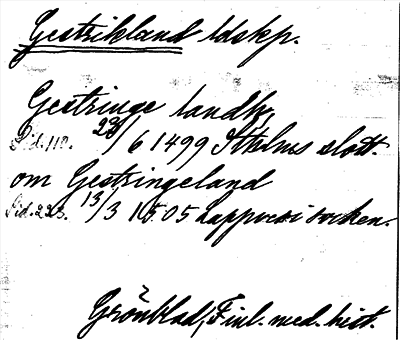 Gestrikland ldskp.
Gestringe landk,
Sid. 119. 23/6 1499 Sthlms slott.
om Gestringeland
Sid. 223. 13/3 1505 Lappvesi socken.
Grönblad, Finl. med. hist.